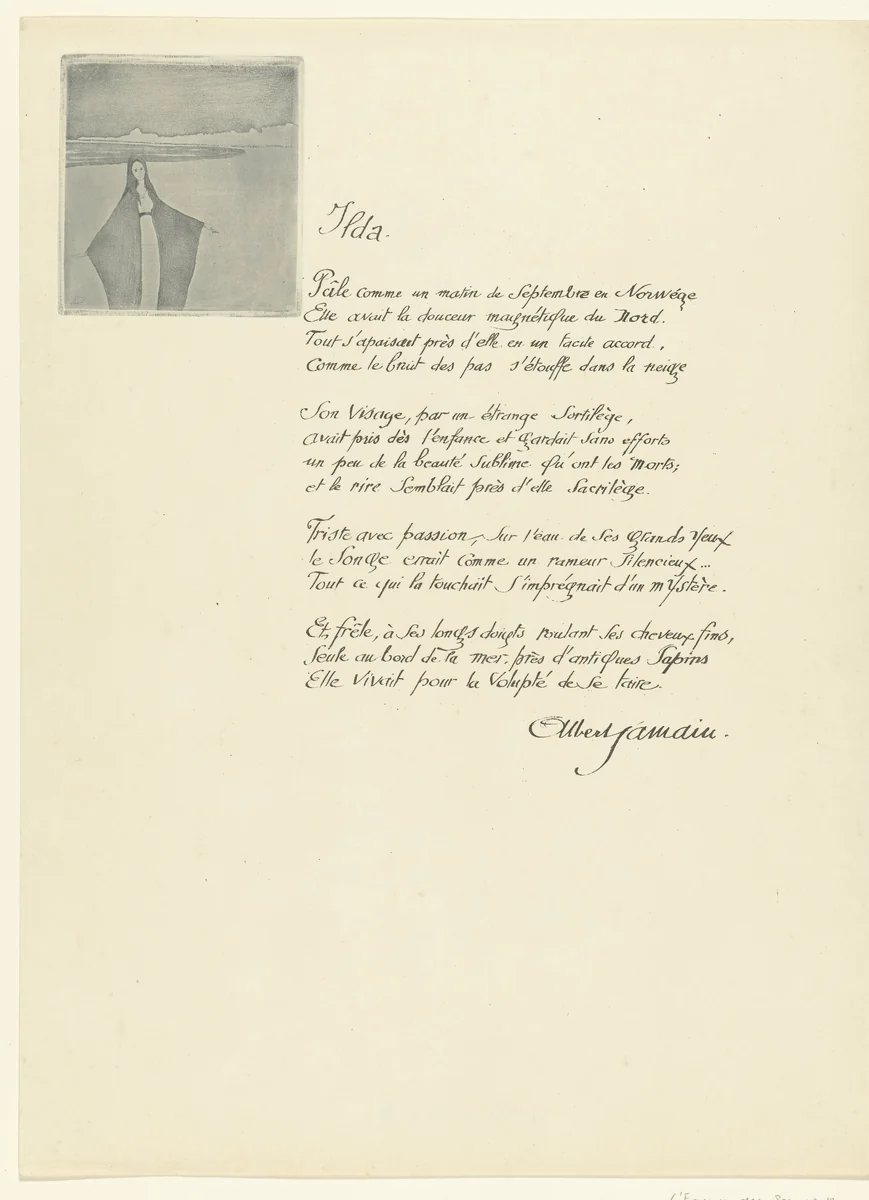 Ilda.
Pâle comme un matin de Septembre en Norwége
Elle avait la douceur magnétique du Nord.
Tout s'apaisait près d'elle en un tacite accord,
Comme le bruit des pas s'étouffe dans la neige
Son Visage, par un étrange Sortilège,
avait pris dès l'enfance et gardait sans efforts
un peu de la beauté sublime qu'ont les Morts;
et le rire Semblait près d'elle Sacrilège.
Triste avec passion, Sur l'eau de ses grands Yeux
le Songe errait comme un rameur Silencieux...
Tout ce qui la touchait S'imprégnait d'un mystère.
Et, frêle, à Ses longs doigts roulant Ses cheveux fins,
Seule au bord de la mer, près d'antiques Sapins
Elle Vivait pour la Volupté de Se taire.
Albert Samain.